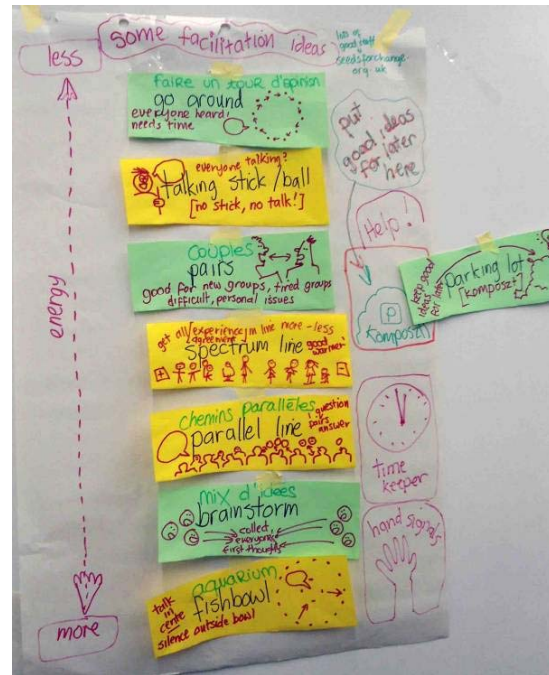 less
some facilitation ideas
lots of
good stuff
seedsforchange
.org.uk
energy
more
faire un tour d'opinion
go around
everyone heard,
needs time
everyone talking?
talking stick/ball
[no stick, no talk!]
couples
pairs
good for new groups, tired groups
difficult, personal issues
get all experience, in line more - less
agreement
spectrum line
good warmer
chemins parallèles
parallel line
1 question
pairs
answer
mix d'idées
brainstorm
called,
everyone
first thoughts
aquarium
fishbowl
talk
in
centre
silence outside bowl
put
good ideas
for later
here
Help!
P
Komposzt
keep good
ideas
for later
parking lot
[komposzt]
time
keeper
hand signals